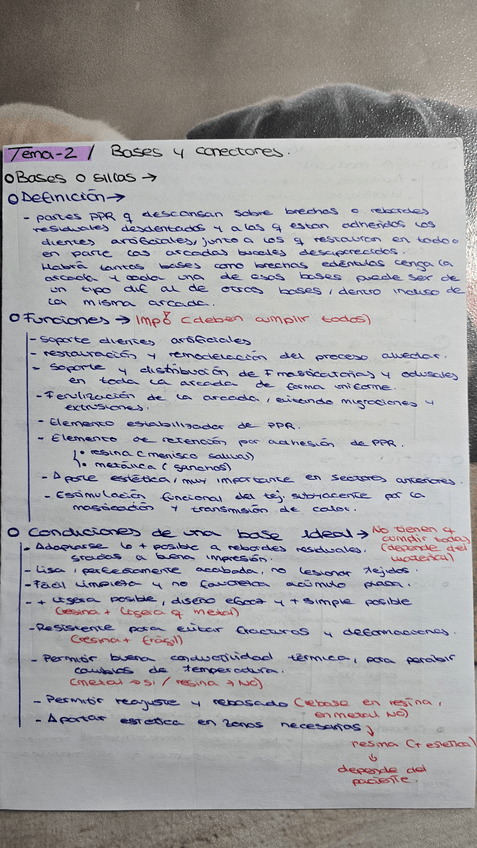 Tema-2 / Bases y conectores.
O Bases o sillas →
O Definición →
- partes PPR q descansan sobre brechas o rebordes
residuales desdentados y a los q están adheridos los
dientes artificiales, junto a los q restauran en todo o
en parte las arcadas bucales desaparecidos.
Habrá tantas bases como brechas edéntulas tenga la
arcada y cada una de esas bases puede ser de
un tipo dif al de otras bases, dentro incluso de
la misma arcada.
O Funciones → Imp (deben cumplir todas)
- Soporte dientes artificiales
- restauración y remodelación del proceso alveolar.
- Soporte y distribución de F masticatorias y oclusales
en toda la arcada de forma uniforme.
- Ferulización de la arcada, evitando migraciones y
extrusiones.
- Elemento estabilizador de PPR.
- Elemento de retención por adhesión de PPR.
resina (menisco salival)
metálica (ganchos)
- Aporte estética, muy importante en sectores anteriores.
- Estimulación funcional del tej. subyacente por la
masticación y transmisión de calor.
O Condiciones de una base ideal → No tienen q
cumplir todas
(depende del
material)
- Adaptarse lo + posible a rebordes residuales.
gracias a buena impresión.
- Lisa, perfectamente acabada, no lesionar tejidos
- Fácil limpieza y no favorezca acúmulo placa.
- + ligera posible, diseño eficaz y + simple posible
(resina + ligera q metal)
- Resistente para evitar fracturas y deformaciones.
(resina + frágil)
- Permitir buena conductividad térmica, para percibir
cambios de temperatura.
(metal → sí / resina → NO)
- Permitir reajuste y rebasado (rebase en resina,
en metal NO)
- Aportar estética en zonas necesarias
resina (+ estética)
depende del
paciente.